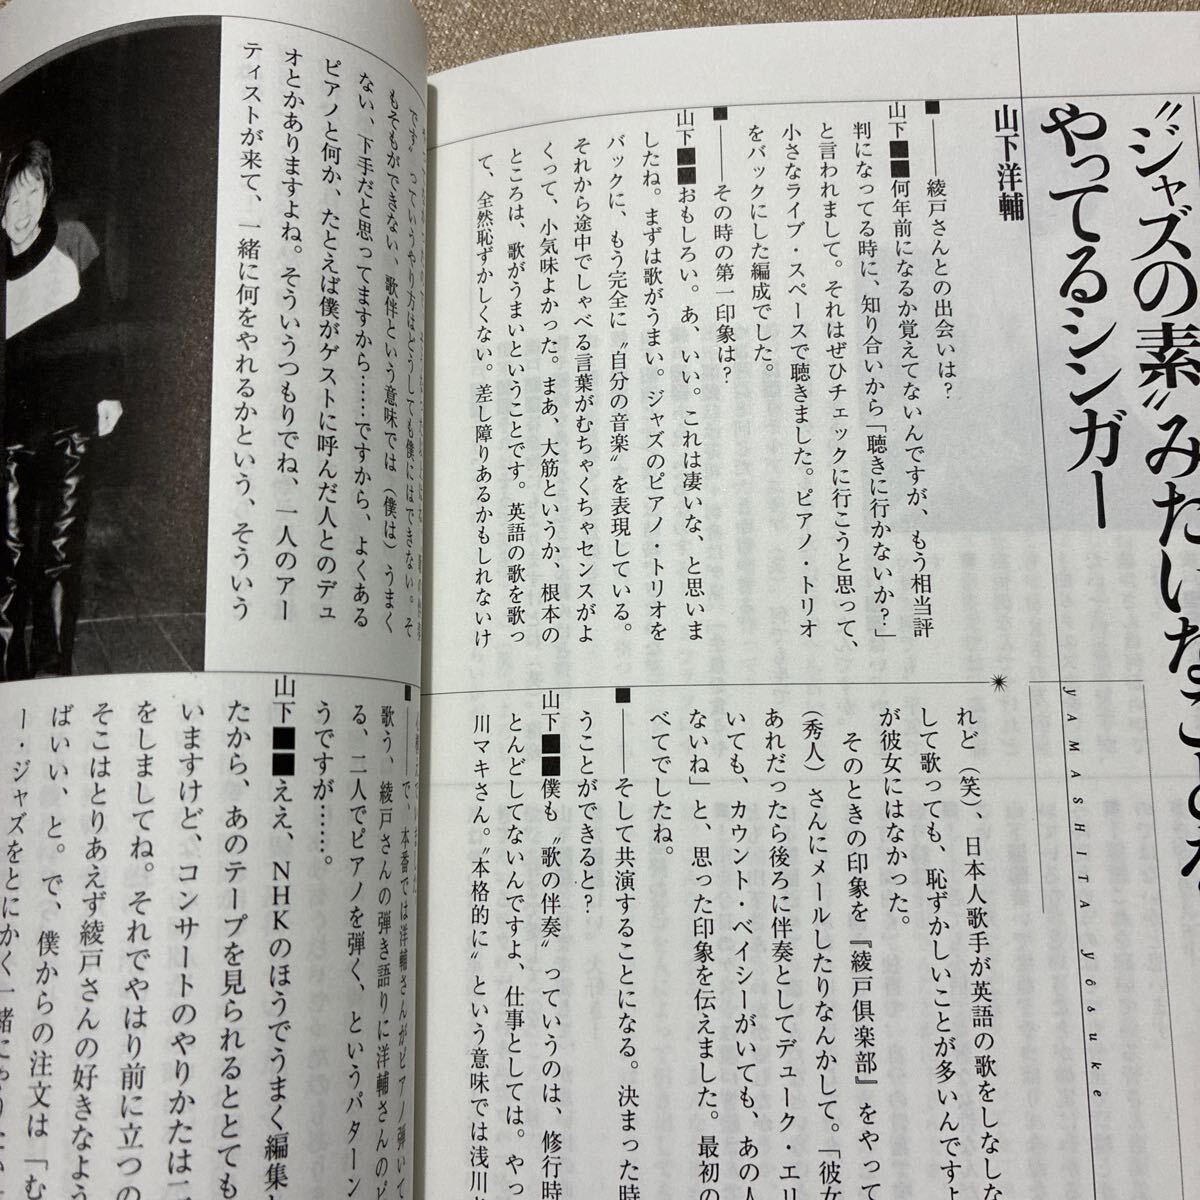 〝ジャズの素〟みたいなことを
やってるシンガー
山下洋輔
YAMASHITA yôsuke
■――綾戸さんとの出会いは？
山下■■何年前になるか覚えてないんですが、もう相当評
判になってる時に、知り合いから「聴きに行かないか？」
と言われまして。それはぜひチェックに行こうと思って、
小さなライブ・スペースで聴きました。ピアノ・トリオ
をバックにした編成でした。
■――その時の第一印象は？
山下■■おもしろい。あ、いい。これは凄いな、と思いま
したね。まずは歌がうまい。ジャズのピアノ・トリオを
バックに、もう完全に〝自分の音楽〟を表現している。
それから途中でしゃべる言葉がむちゃくちゃセンスがよ
くって、小気味よかった。まあ、大筋というか、根本の
ところは、歌がうまいということです。英語の歌を歌っ
て、全然恥ずかしくない。差し障りあるかもしれないけ
れど（笑）、日本人歌手が英語の歌をしなしな
して歌っても、恥ずかしいことが多いんですよ
が彼女にはなかった。
そのときの印象を『綾戸倶楽部』をやって
（秀人）さんにメールしたりなんかして。「彼女
あれだったら後ろに伴奏としてデューク・エリ
いても、カウント・ベイシーがいても、あの人
ないね」と、思った印象を伝えました。最初の
べてでしたね。
■――そして共演することになる。決まった時
うことができると？
山下■■僕も〝歌の伴奏〟っていうのは、修行時
とんどしてないんですよ、仕事としては。やっ
浅川マキさん。〝本格的に〟という意味では浅川
です〟っていうやり方はどうしても僕にはできない。そ
もそもができない、歌伴という意味では（僕は）うまく
ない、下手だと思ってますから……ですから、よくある
ピアノと何か、たとえば僕がゲストに呼んだ人とのデュ
オとかありますよね。そういうつもりでね、一人のアー
ティストが来て、一緒に何をやれるかという、そういう
■――で、本番では洋輔さんがピアノ弾いて
歌う、綾戸さんの弾き語りに洋輔さんのピ
る、二人でピアノを弾く、というパターン
うですが……。
山下■■ええ、NHKのほうでうまく編集し
たから、あのテープを見られるととても
いますけど、コンサートのやりかたは二
をしましてね。それでやはり前に立つの
そこはとりあえず綾戸さんの好きなよう
ばいい、と。で、僕からの注文は「む
ー・ジャズをとにかく一緒にやりたい